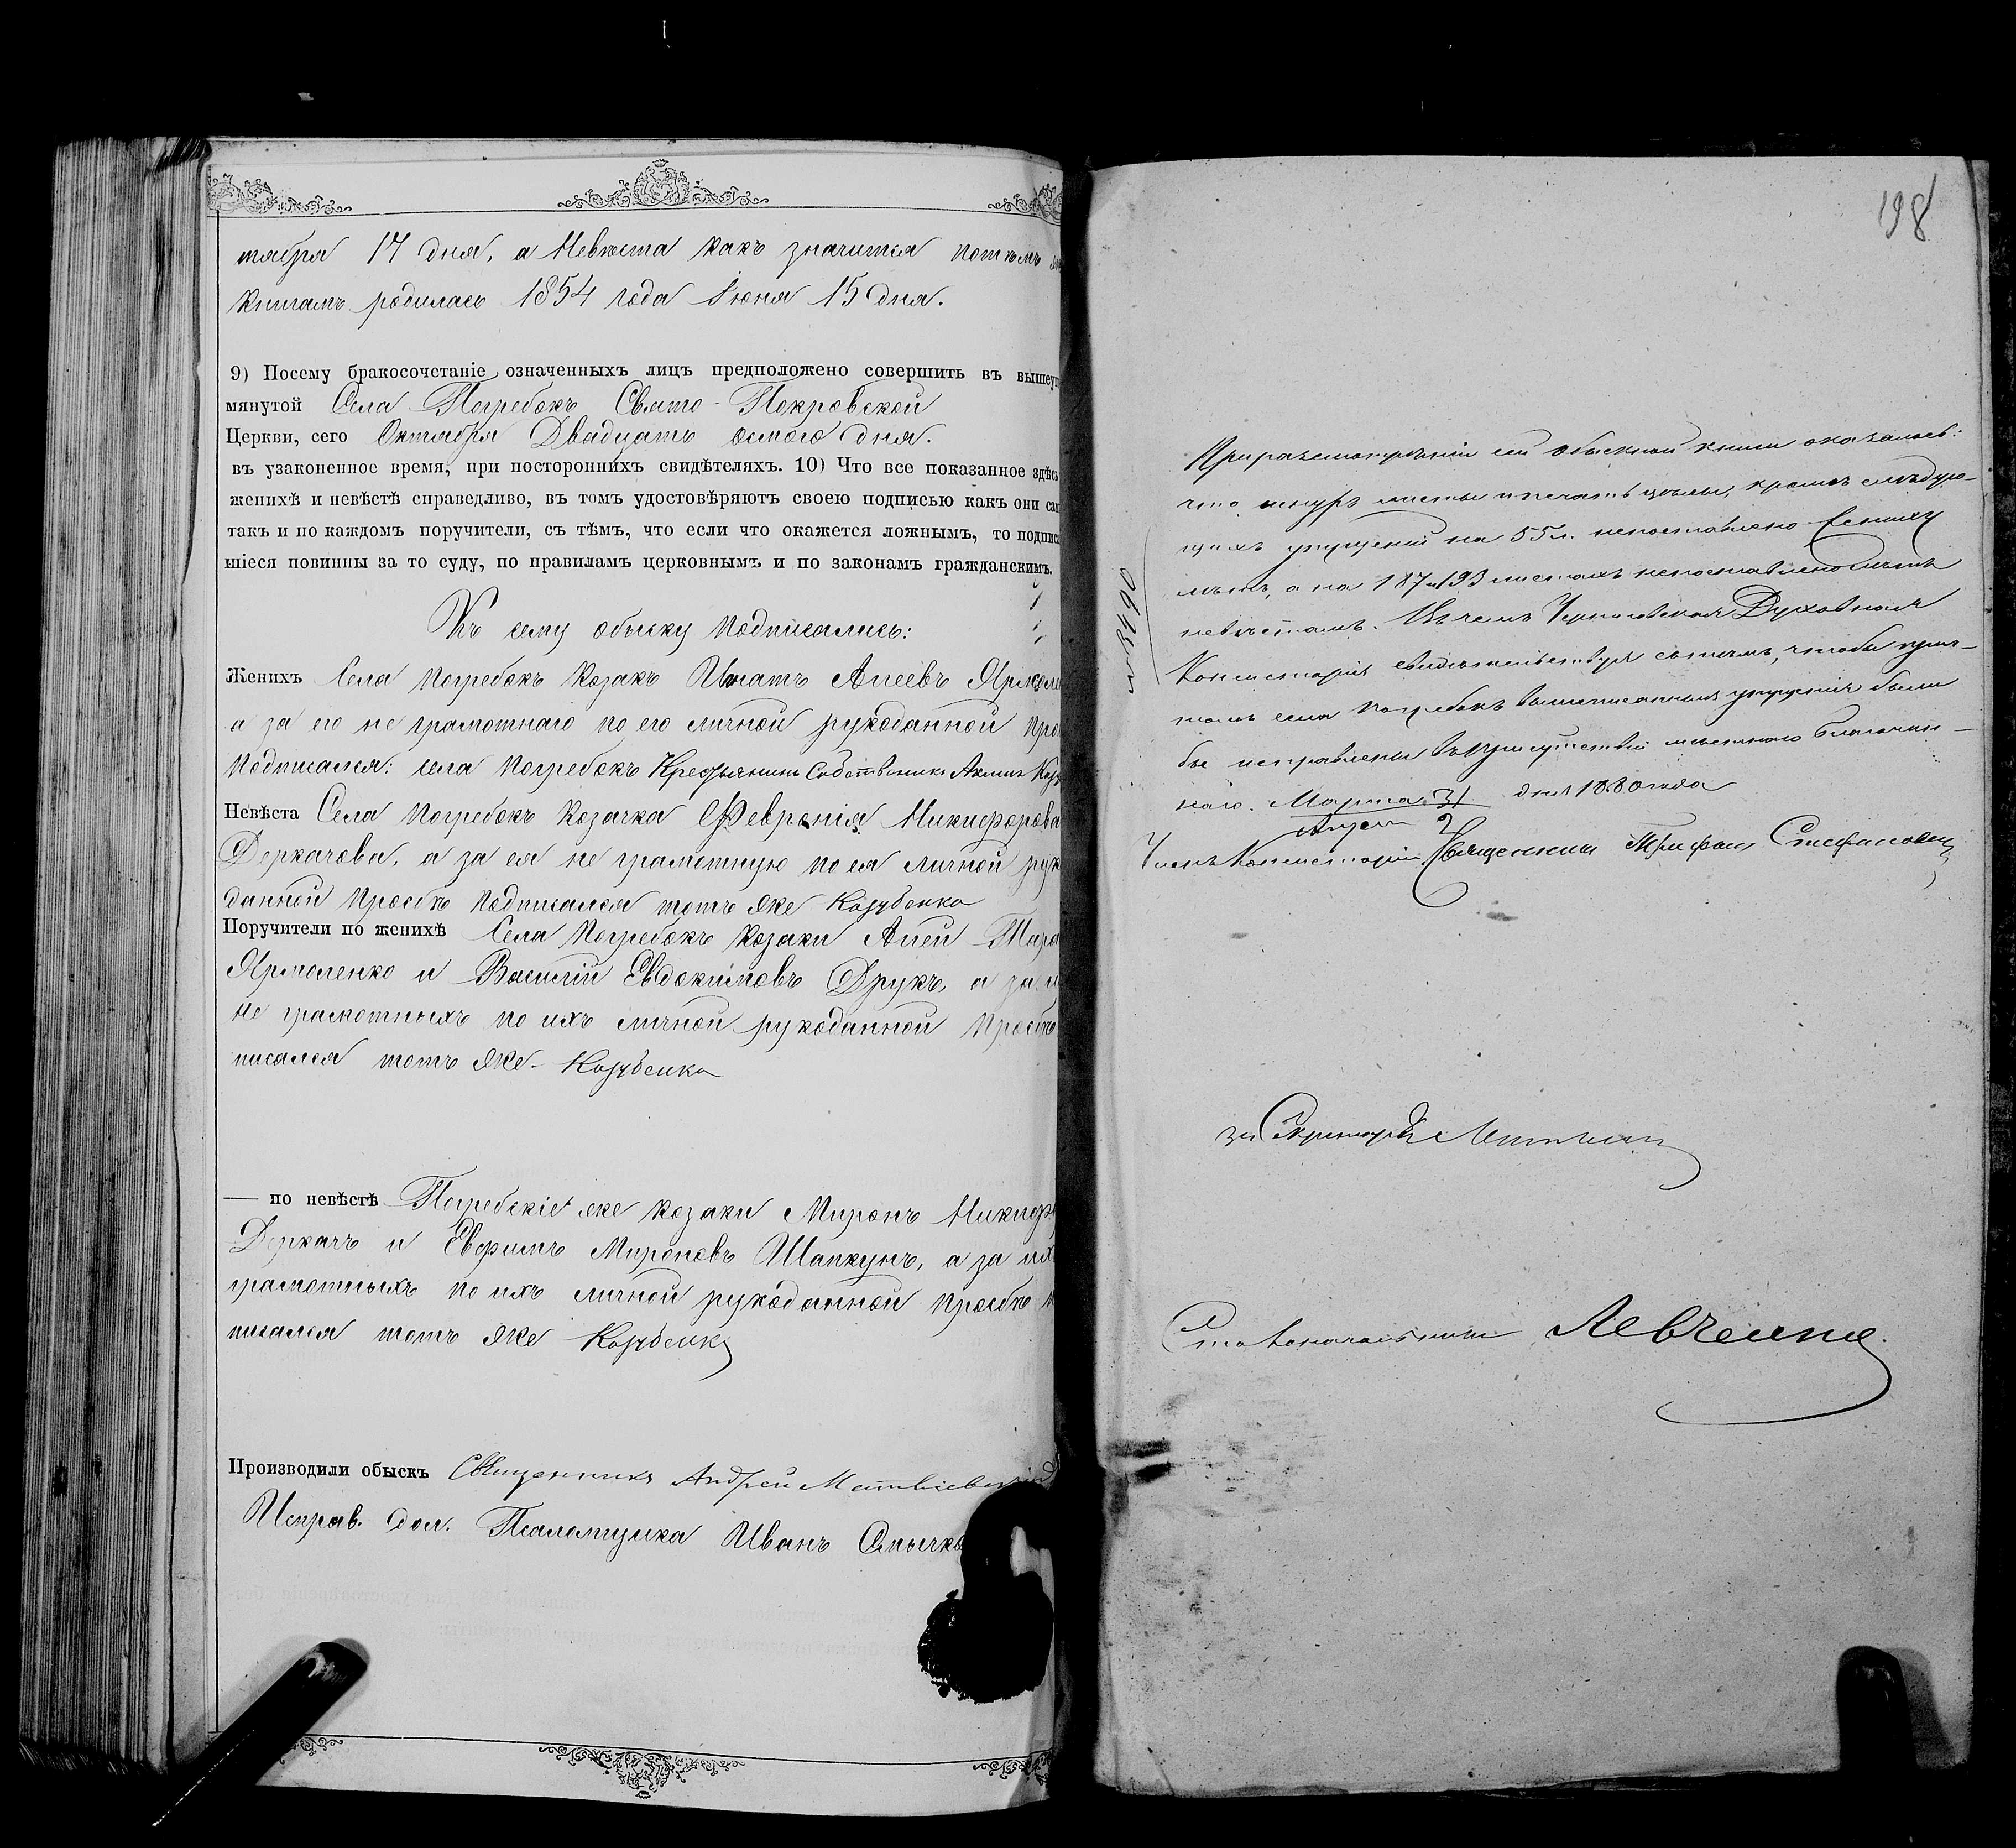 тября 17 дня, а Невѣста какъ значится потѣмъ
книгамъ родилась 1854 года Іюня 15 дня.
9) Посему бракосочетаніе означенныхъ лицъ предположено совершить въ вышеуп
мянутой Села Погребокъ Свято-Покровской
Церкви, сего Октября Двадцать осмого дня.
въ узаконенное время, при постороннихъ свидѣтеляхъ. 10) Что все показанное здѣсь
женихѣ и невѣстѣ справедливо, въ томъ удостовѣряютъ своею подписью какъ они са
такъ и по каждомъ поручители, съ тѣмъ, что если что окажется ложнымъ, то подпис
шіеся повинны за то суду, по правиламъ церковнымъ и по законамъ гражданскимъ.
Къ сему обыску подписались:
Женихъ Села Погребокъ Козакъ Игнатъ Агеевъ Ярмоле
а за его не грамотнаго по его личной рукоданной про
подписался: села Погребокъ Крестьянинъ Собственникъ Акимъ Коз
Невѣста Села Погребокъ Козачка Февронія Никифорова
Деркачова, а за ея не грамотную по ея личной рук
данной просбѣ подписался тотъ же Козубенко
Поручители по женихѣ Села Погребокъ Козаки Агей Тара
Ярмоленко и Василій Евдокимовъ Друкъ, а за и
не грамотныхъ по ихъ личной рукоданной просбѣ
писался тотъ же Козубенко
— по невѣстѣ Погребскіе же козаки Миронъ Никиф
Деркачъ и Евфимъ Мироновъ Шапкунъ, а за их
грамотныхъ по ихъ личной рукоданной просбѣ
писался тотъ же Козубенко
Производили обыскъ Священникъ Андрей Матвіевскій
Исправ. дол. Псаломщика Иванъ Смычко
198
При разсмотрѣніи сей обыскной книги оказалось:
что шнуръ листы и печать цѣлы, кромѣ слѣдую-
щихъ упущеній на 55 л. непоставлено Жениху
лѣтъ, а на 187 и 193 листахъ непоставлено лѣтъ
невѣстамъ. Въ чемъ Черниговская Духовная
Консисторія свидѣтельствуя съ тѣмъ, чтобы прич-
томъ села Погребокъ вышеписанныя упущенія были
бы исправлены въ присутствіи мѣстнаго благочин-
наго. Марта 31 дня 1880 года
Апрѣл 2
Членъ Консисторіи Священникъ Трифонъ Стефановскій
№ 3490
за Секретаря
Столоначальникъ Левченко.